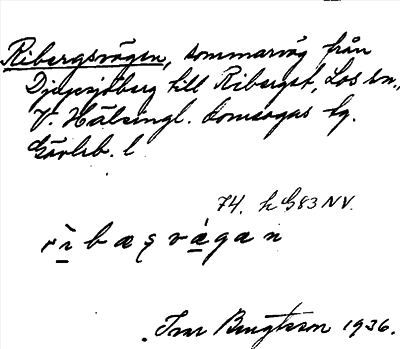 Ribergsvägen, sommarväg från
Djupsjöberg till Riberget, Los sn.,
V. Hälsingl. domsagas tg.
Gävleb. l.
74. k G83 NV.
rìbæşvágan
Ivar Bengtsson 1936.